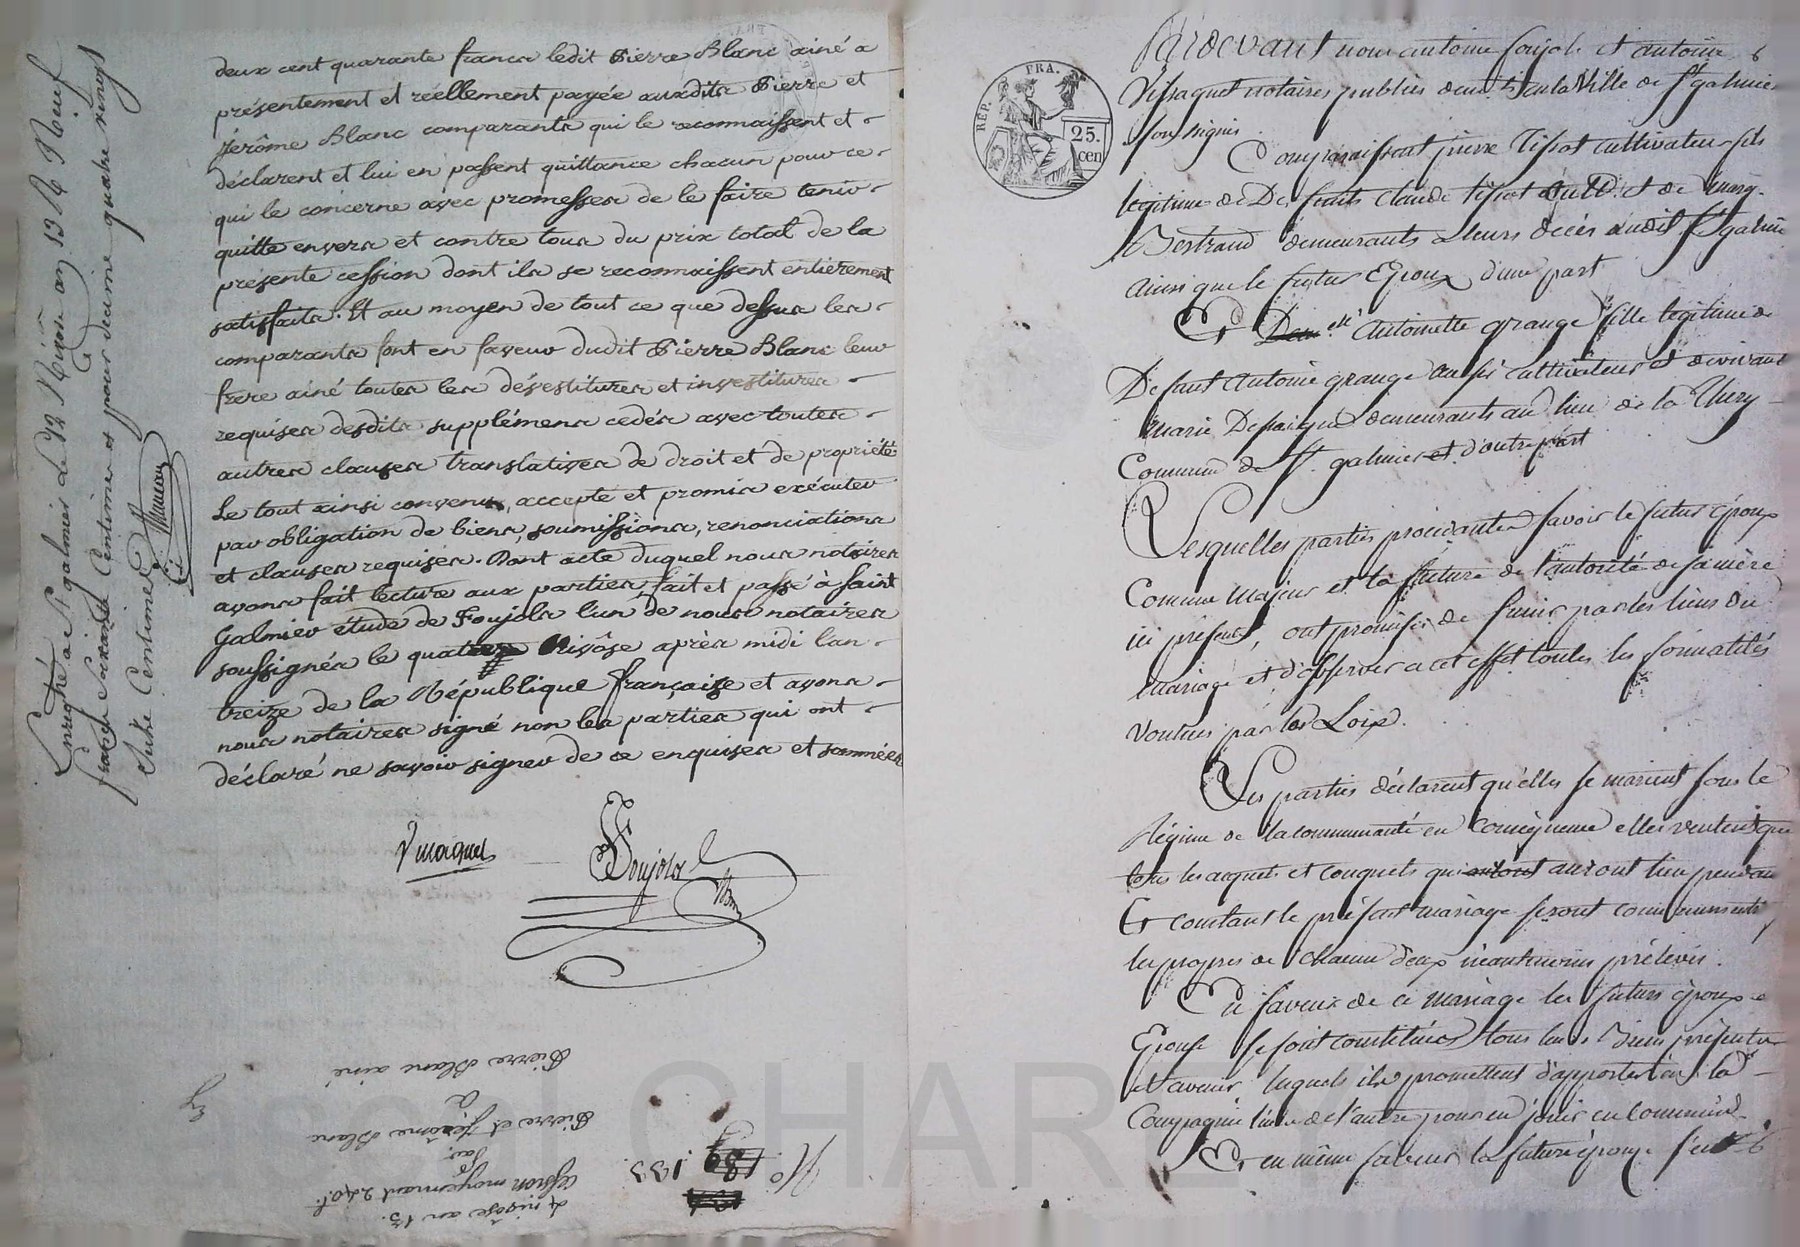 deux cent quarante francs ledit Pierre Blanc ainé a
présentement et réellement payée auxdits Pierre et
Jérôme Blanc comparants qui le reconnaissent et
déclarent et lui en passent quittance chacun pour ce
qui le concerne avec promesses de le faire tenir
quitte envers et contre tous du prix total de la
présente cession dont ils se reconnaissent entièrement
satisfaits. Et au moyen de tout ce que dessus les
comparants font en faveur dudit Pierre Blanc leur
frere ainé toutes les dévestitures et investitures
requises desdits supplémens cedés avec toutes
autres clauses translatives de droit et de propriété
Le tout ainsi convenu, accepté et promis exécuter
par obligation de biens, soumissions, renonciations
et clauses requises. Dont acte duquel nous notaires
avons fait lecture aux parties, fait et passé à Saint
Galmier étude de Foujols l'un de nous notaires
soussignés le quatre Nivôse après midi l'an
treize de la République française et avons
nous notaires signé non les parties qui ont
déclaré ne savoir signer de ce enquises et sommées
Foujols
Enregistré à St galmier Le 12 Nivose an 13 R Neuf
francs soixante Centimes et pour decime quatre vingt
seize Centimes
4 nivôse an 13.
Cession moyennant 240f.
par
Pierre et Jérome Blanc
à
Pierre Blanc ainé
No 189 133
RÉP. FRA.
25.
cen
Pardevant nous antoine foujols et antoine
notaires publics en la Ville de St galmier
soussignés
Comparaissent pierre Tissot cultivateur fils
légitime de Defunts Claude tissot et de marg.
Bertrand demeurants a leurs décès audit St galmier
ainsi que le futur Epoux d'une part
Et Delle antoinette grange fille legitime de
Defunt Antoine grange aussi cultivateur et de vivant
Marie demeurants au lieu de la Thery
Commune de St. galmier et d'autre part
Lesquelles parties procedantes savoir le futur époux
Comme Majeur et la future de l'autorité de sa mère
ici présente, ont promis de s'unir par les liens du
mariage et d'observer a cet effet toutes les formalités
voulues par les Loix.
Les parties déclarent qu'elles se marient sous le
Régime de la communauté en conséquence elles veulent que
tous les acquets et conquets qui auront lieu pendant
Et constant le présent mariage seront communs
les propres de chacun d'eux néantmoins prélevés.
En faveur de ce mariage les futurs époux
Epouse se sont constitués tous leurs Biens présents
et avenir lesquels ils promettent d'apporter en la
Compagnie l'un de l'autre pour en jouir en commun
Et en même faveur la future épouse s'est